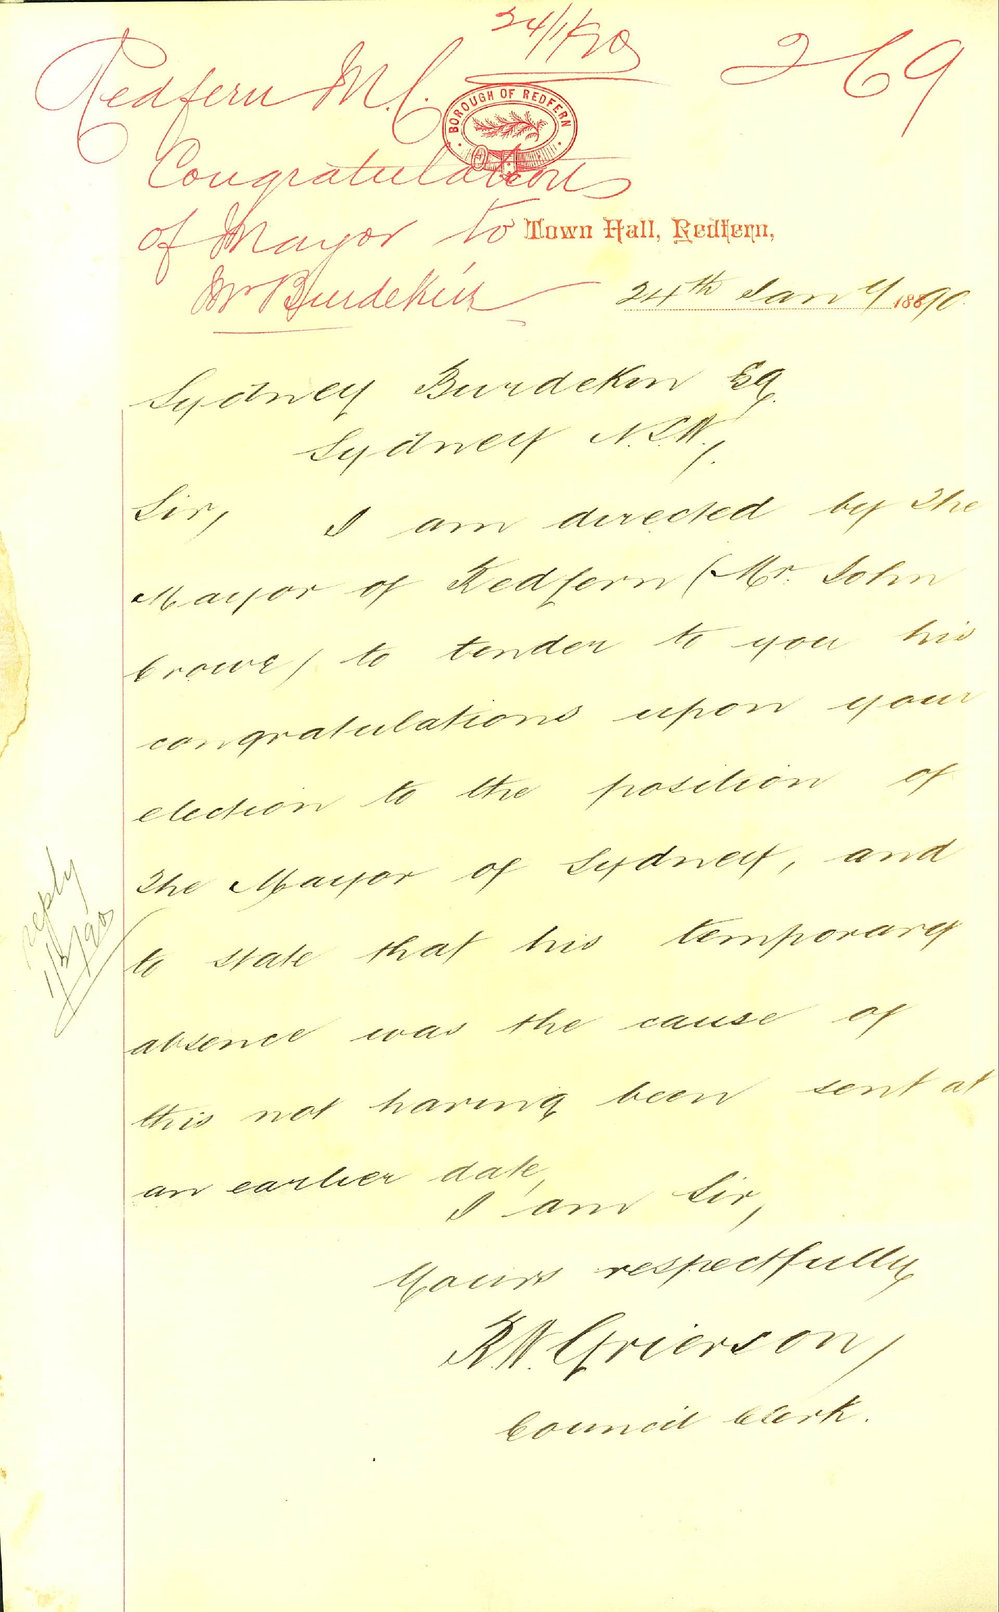 24/1/90
269
Redfern M.C.
BOROUGH OF REDFERN
Congratulations
of Mayor to
Mr Burdekin
Town Hall, Redfern,
24th Jany 1890.
Sydney Burdekin Esq.
Sydney N.S.W.,
Sir, I am directed by The
Mayor of Redfern (Mr. John
Crowe) to tender to you his
congratulations upon your
election to the position of
The Mayor of Sydney, and
to state that his temporary
absence was the cause of
this not having been sent at
an earlier date,
I am Sir,
Yours respectfully
R.W. Grierson,
Council Clerk.
reply
1/2/90